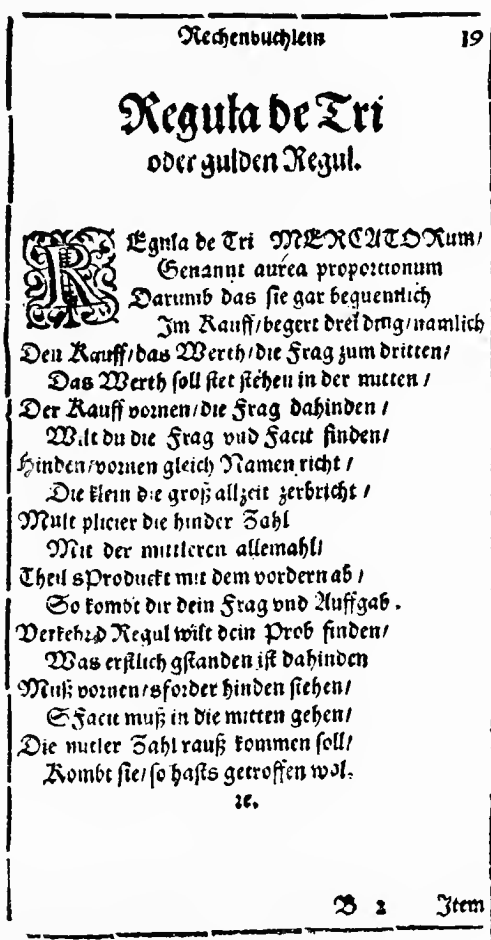 Rechenbuchlein 19
Regula de Tri
oder gulden Regul.
REgula de Tri MERCATORum/
Genannt aurea proportionum
Darumb das sie gar bequentlich
Im Kauff/begert drei ding/namlich
Den Kauff/das Werth/die Frag zum dritten/
Das Werth soll stet stehen in der mitten /
Der Kauff vornen/die Frag dahinden /
Wilt du die Frag vnd Facit finden/
Hinden/vornen gleich Namen richt /
Die klein die groß allzeit zerbricht /
Multiplicier die hinder Zahl
Mit der mittleren allemahl/
Theil sProduckt mit dem vordern ab /
So kombt dir dein Frag vnd Auffgab.
Verkehr d Regul wilt dein Prob finden/
Was erstlich gstanden ist dahinden
Muß vornen/sforder hinden stehen/
S Facit muß in die mitten gehen/
Die mitler Zahl rauß kommen soll/
Kombt sie/so hasts getroffen wol.
ꝛc.
B 2 Item